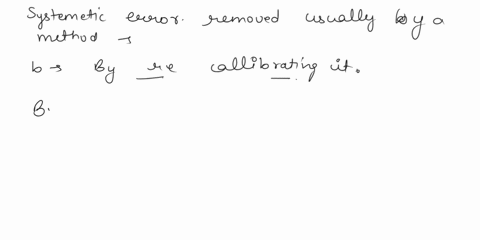 Systemetic error. removed usually by a
method →
b → By re callibrating it.
B.